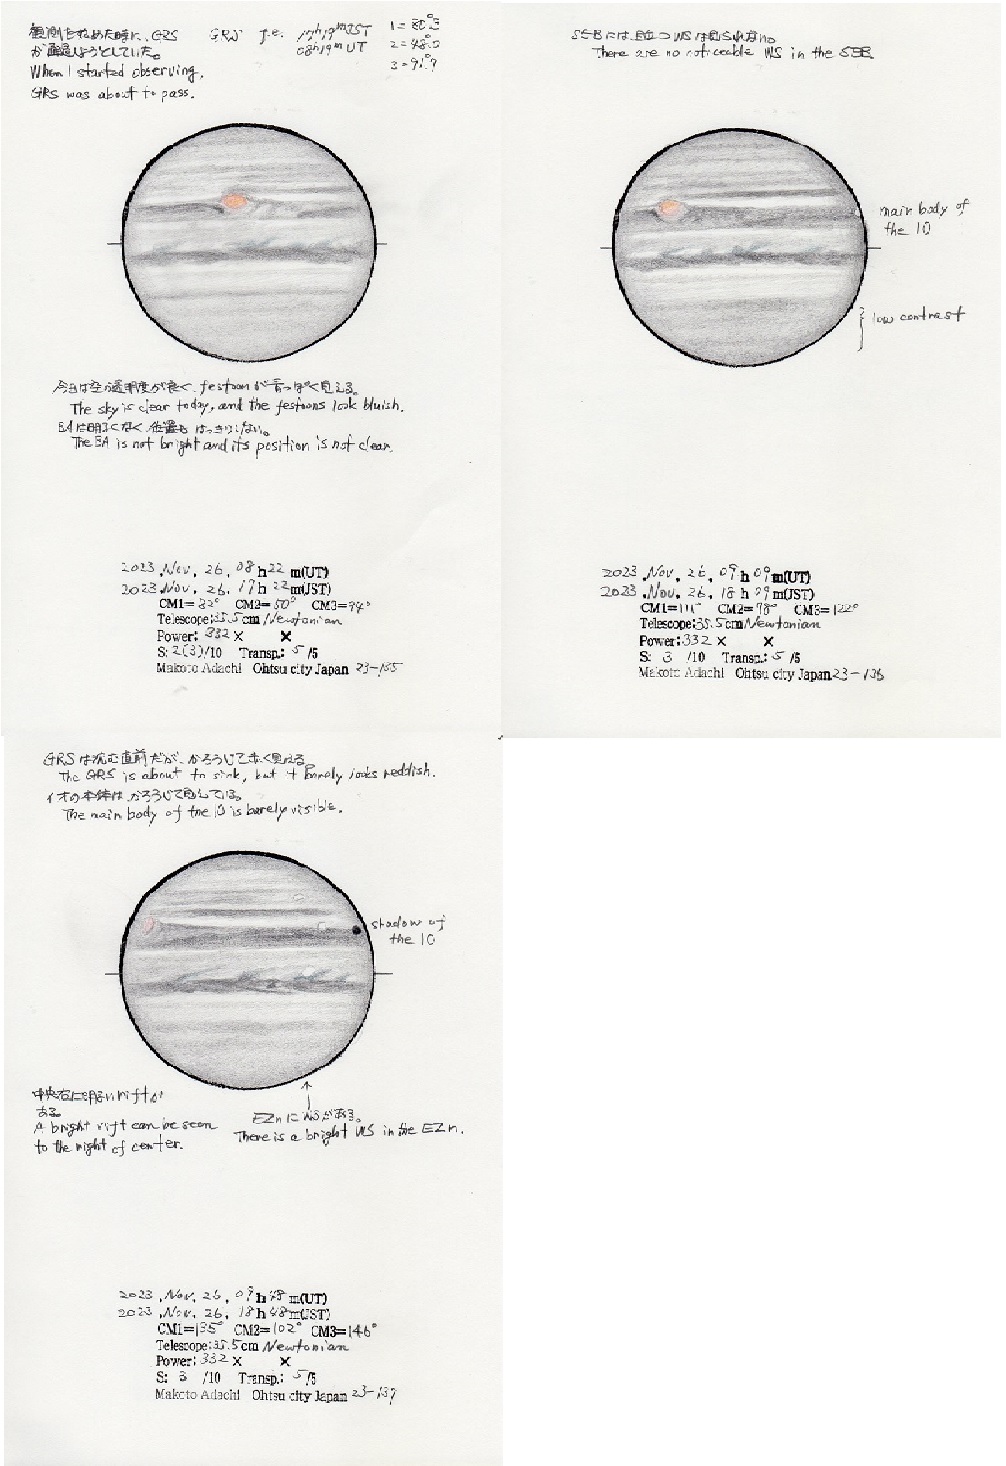 観測を始めた時に、GRS
が通過しようとしていた。
When I started observing,
GRS was about to pass.
GRS
17h19m JST
08h19m UT
2=48.0
今日は空の透明度が良く、festoonが青っぽく見える。
The sky is clear today, and the festoons look bluish.
は明るくなく、位置もはっきりしない。
The is not bright and its position is not clear.
2023 .Nov. 26. 08h22m(UT)
2023 .Nov. 26. 17h22m(JST)
CM1=82° CM2=50° CM3=94°
Telescope:35.5cm/Newtonian
Power: 332× ×
S: 2(3)/10 Transp.: 5/5
Makoto Adachi Ohtsu city Japan 23-135
SEBには目立つWSは見られない。
There are no noticeable WS in the SEB.
main body of
the IO
low contrast
2023 .Nov. 26. 09h09m(UT)
2023 .Nov. 26. 18h
CM1=111° CM2=78° CM3=122°
Telescope:35.5cm/Newtonian
Power: 332× ×
S: 3 /10 Transp.: 5/5
Makoto Adachi Ohtsu city Japan 23-136
GRSは沈む直前だが、かろうじて赤く見える。
The GRS is about to sink, but it barely looks reddish.
イオの本体はかろうじて見えている。
The main body of the IO is barely visible.
shadow of
the IO
中央右に明るいriftが
ある。
A bright rift can be seen
to the right of center.
EZnにWSがある。
There is a bright WS in the EZn.
2023 .Nov. 26. 09h48m(UT)
2023 .Nov. 26. 18h48m(JST)
CM1=135° CM2=102° CM3=146°
Telescope:35.5cm Newtonian
Power: 332× ×
S: 3 /10 Transp.: 5/5
Makoto Adachi Ohtsu city Japan 23-137